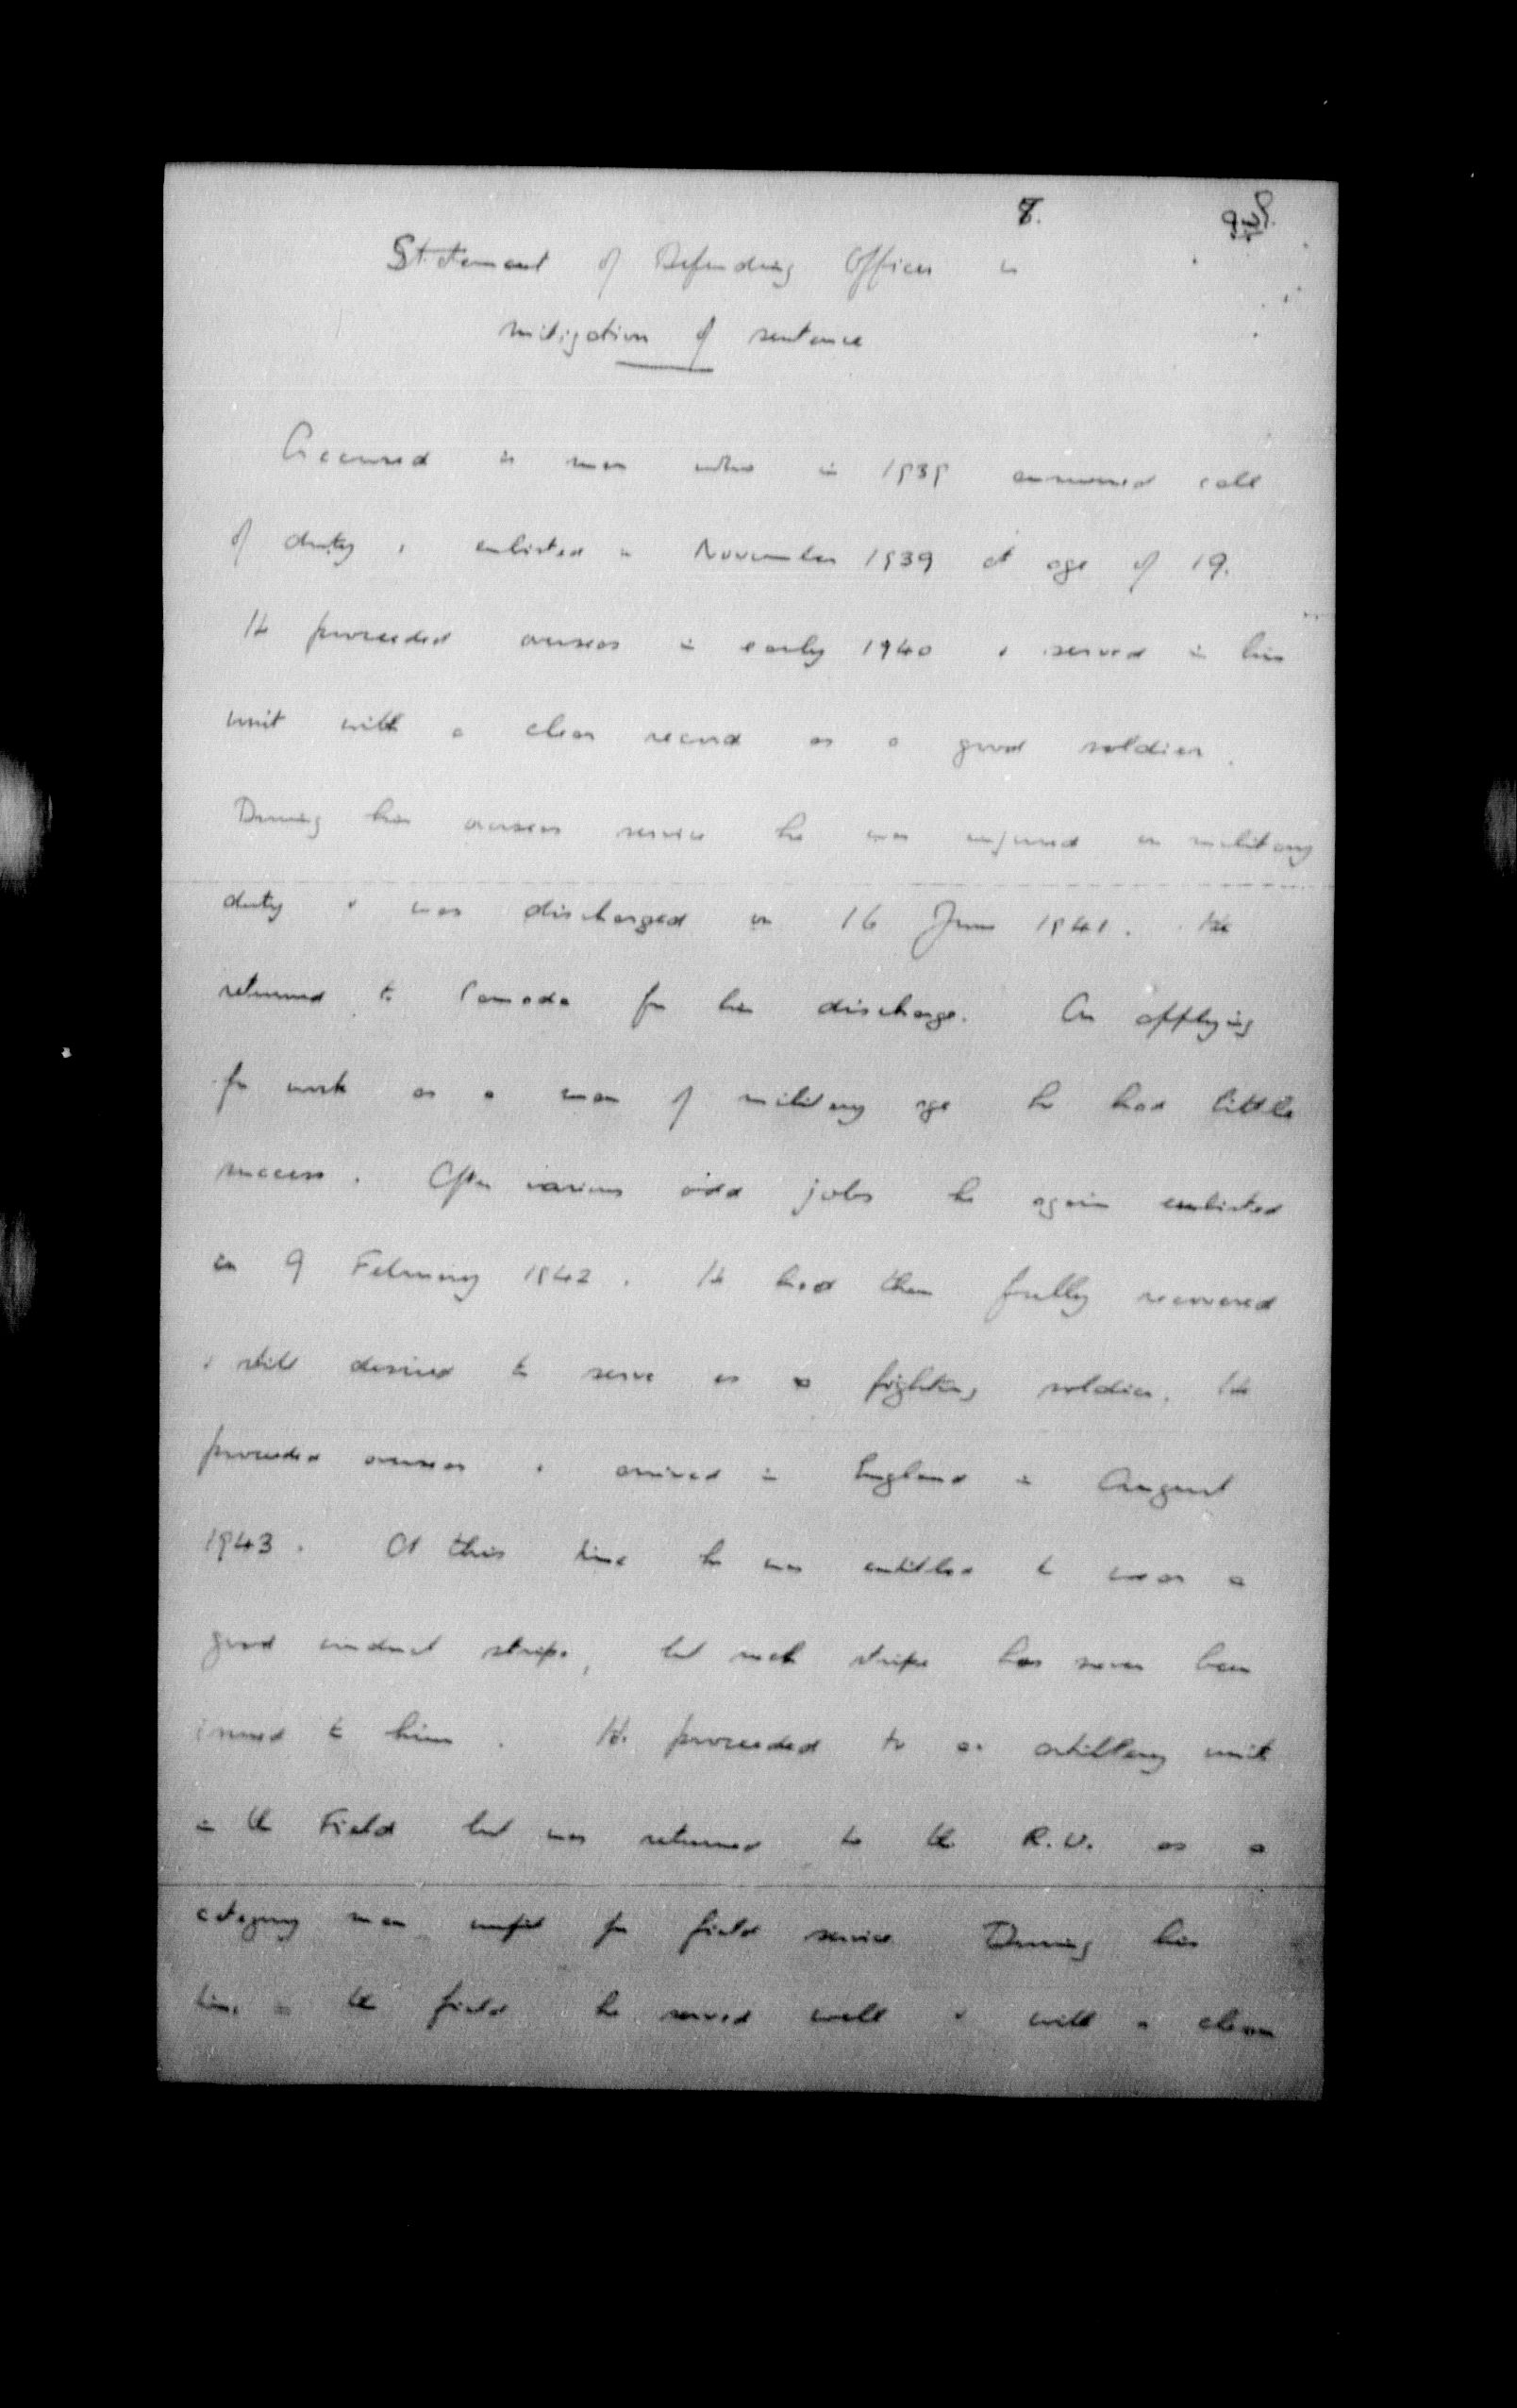 8.
Statement of Defending Officer in
mitigation of sentence
Accused is man who in 1939 answered call
of duty & enlisted in November 1939 at age of 19.
He proceeded overseas in early 1940 & served in his
unit with a clear record as a good soldier.
During his overseas service he was injured on military
duty & was discharged on 16 June 1941. He
returned to Canada for his discharge. On applying
for work as a man of military age he had little
success. After various odd jobs he again enlisted
on 9 February 1942. He had then fully recovered
& still desired to serve as a fighting soldier. He
proceeded overseas & arrived in England in August
1943. At this time he was entitled to wear a
good conduct stripe, but such stripe has never been
issued to him. He proceeded to an artillery unit
in the Field but was returned to the R.U. as a
category man unfit for field service During his
time in the field he served well & with a clean